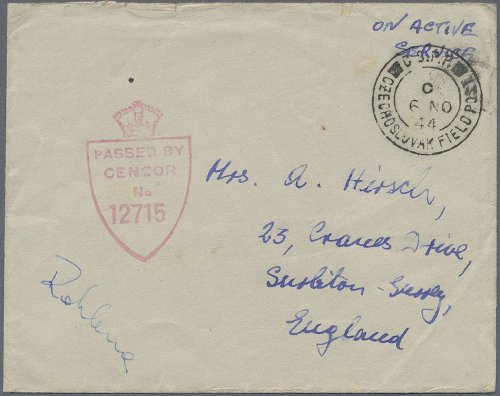 ON ACTIVE
SERVICE
C
6 NO
44
CZECHOSLOVAK FIELD POST
PASSED BY
CENSOR
No
12715
Mrs. A. Hirsch,
23, Cranes Drive,
Surbiton-Surrey,
England